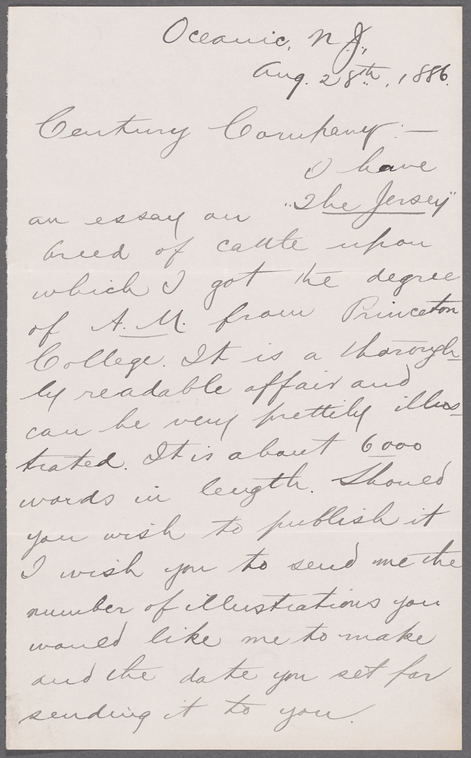 Oceanic, N.J.,
Aug. 28th, 1886.
Century Company:—
I have
an essay on "The Jersey"
breed of cattle upon
which I got the degree
of A.M. from Princeton
College. It is a thorough-
ly readable affair and
can be very prettily illus-
trated. It is about 6000
words in length. Should
you wish to publish it
I wish you to send me the
number of illustrations you
would like me to make
and the date you set for
sending it to you.